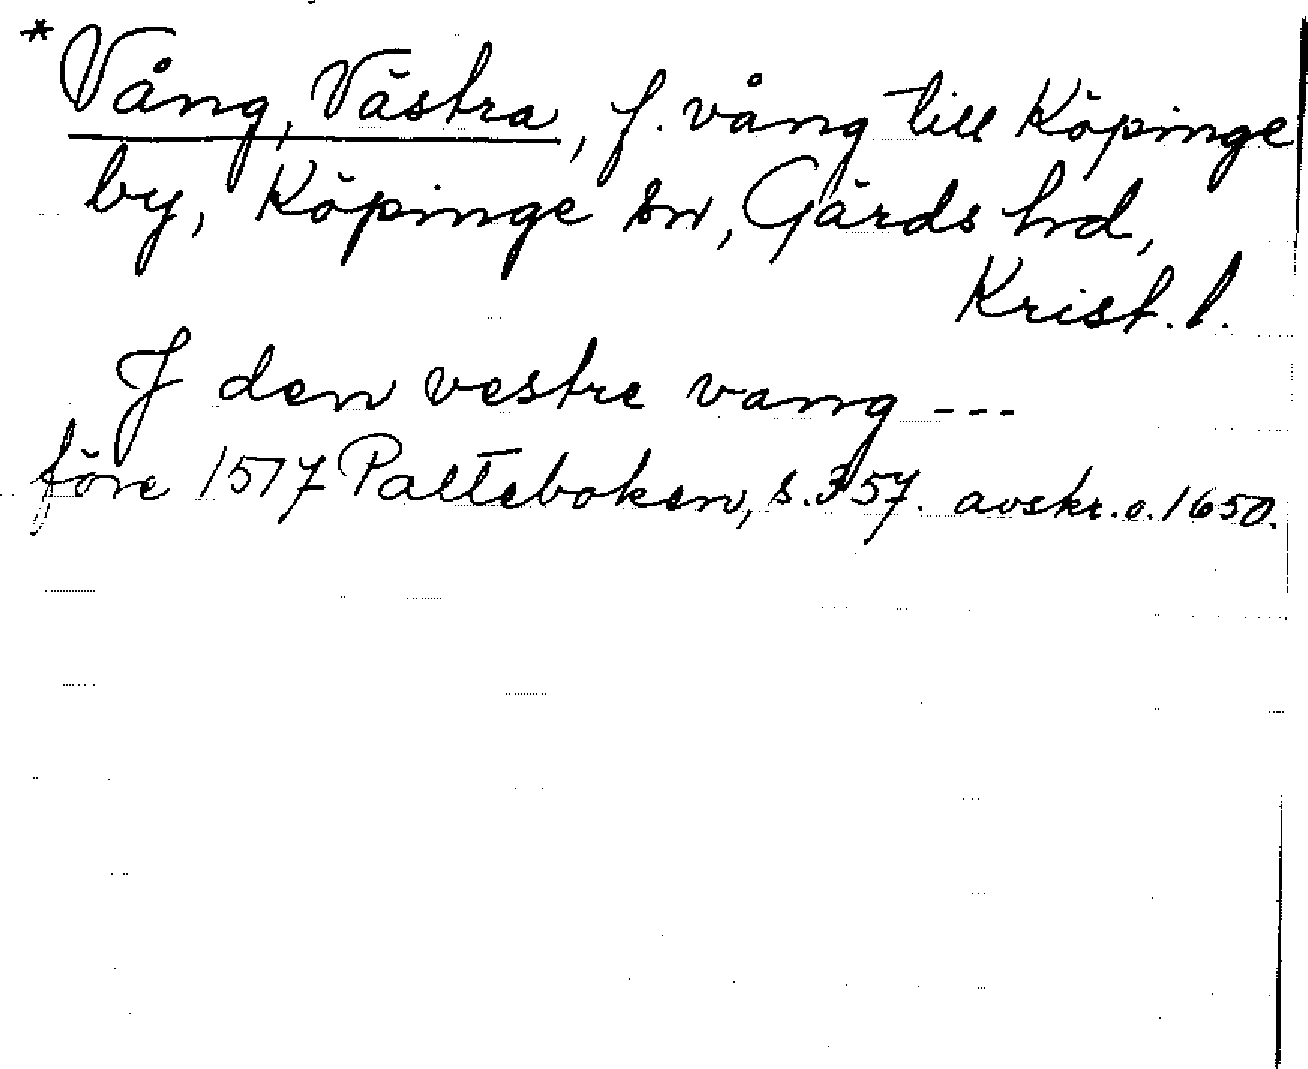 * Vång, Västra, f. vång till Köpinge
by, Köpinge sn, Gärds hd,
Krist. l.
J den vestre vang ---
före 1517 Palteboken, s. 357. avskr. o. 1650.